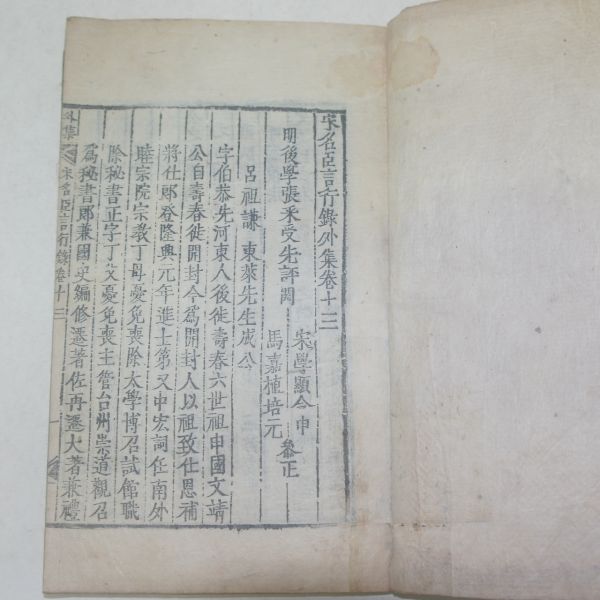 宋名臣言行錄外集卷十三
明後學張采受先評閱
宋學顯令申
馬嘉植培元
參正
呂祖謙 東萊先生成公
字伯恭先河東人後徙壽春六世祖申國文靖
公自壽春徙開封今爲開封人以祖致仕恩補
將仕郎登隆興元年進士第又中宏詞任南外
睦宗院宗教丁母憂免喪除太學博召試館職
除秘書正字丁父憂免喪主管台州崇道觀召
爲秘書郎兼國史編修遷著佐再遷大著兼禮
外集
宋名臣言行錄卷十三
一